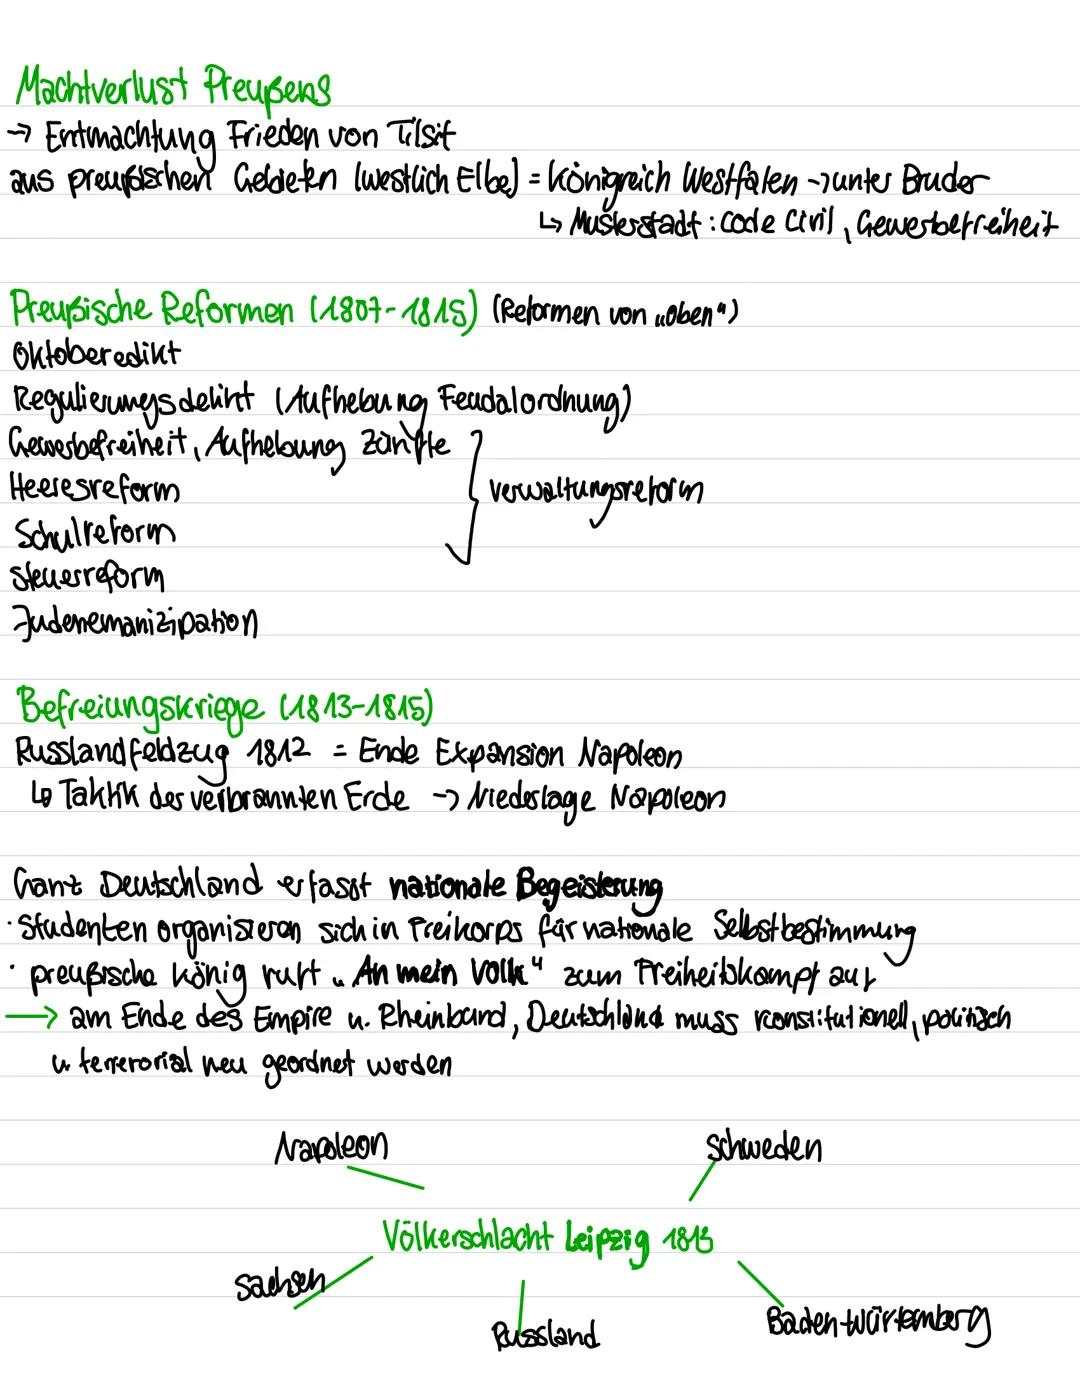 Machtverlust Preußens
→ Entmachtung Frieden von Tilsit
aus preußischen Gebieten (westlich Elbe) = Königreich Westfalen → unter Bruder
↳ Musterstadt : Code Civil, Gewerbefreiheit
Preußische Reformen (1807-1815) (Reformen von „oben“)
Oktoberedikt
Regulierungsdelikt (Aufhebung Feudalordnung)
Gewerbefreiheit, Aufhebung Zünfte
Heeresreform
verwaltungsreform
Schulreform
Steuerreform
Judenemanizipation
Befreiungskriege (1813-1815)
Russlandfeldzug 1812 = Ende Expansion Napoleon
↳ Taktik der verbrannten Erde → Niederlage Napoleon
Ganz Deutschland erfasst nationale Begeisterung
· Studenten organisieren sich in Freikorps für nationale Selbstbestimmung
· preußische König ruft „An mein Volk“ zum Freiheitskampf auf
→ am Ende des Empire u. Rheinbund, Deutschland muss konstitutionell, politisch
u. terrerorial neu geordnet werden
Napoleon
Schweden
Völkerschlacht Leipzig 1813
Sachsen
Russland
Baden-Würtemberg